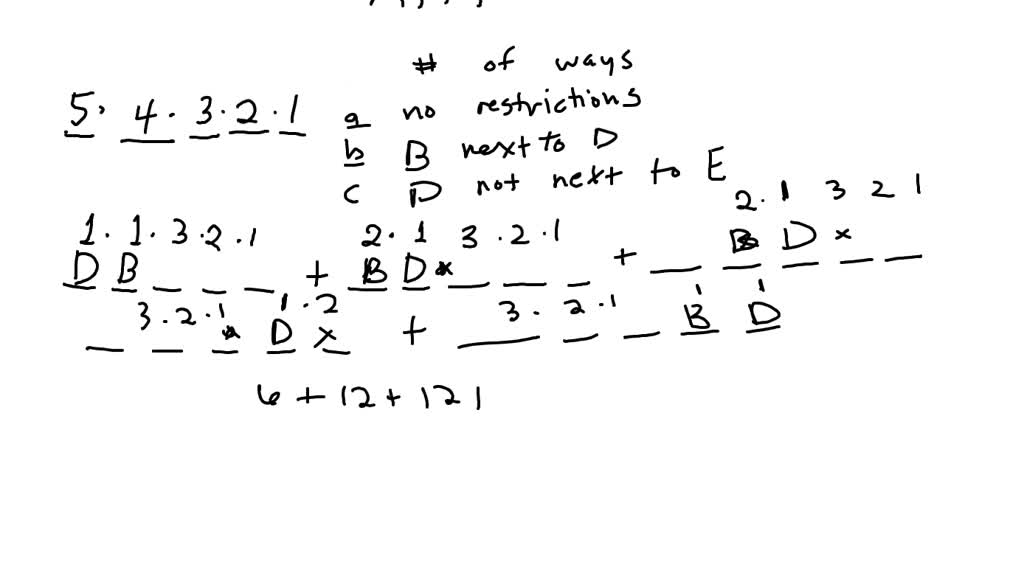 # of ways
5. 4. 3.2.1
a no restrictions
b B next to D
c D not next to E
1. 1. 3.2.1 2. 1 3.2.1 2. 1 3 2 1
D B _ _ _ + B D x _ _ _ + _ B D x _ _
3.2.1 1.2 3. 2.1 1 1
_ _ _ D x + _ _ _ B D
6 + 12 + 12 1